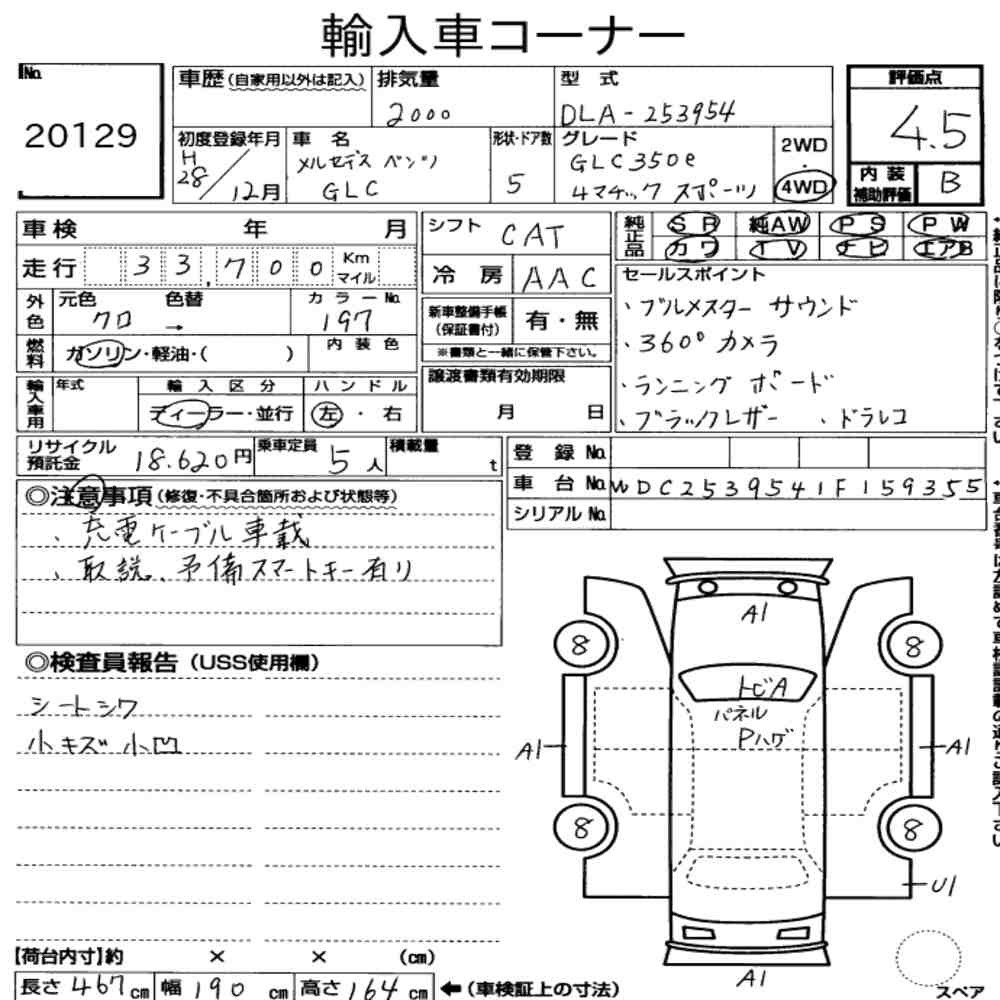 輸入車コーナー
No.
20129
車歴(自家用以外は記入)
排気量
2000
型 式
DLA-253954
評価点
4.5
初度登録年月
H
28/12月
車 名
メルセデス ベンツ
GLC
形状・ドア数
5
グレード
GLC350e
4マチック スポーツ
2WD
・
4WD
内 装
補助評価
B
車検 年 月
走行 33,700 Km
マイル
外色
元色 色替
クロ →
カラーNo.
197
燃料
ガソリン・軽油・( )
内 装 色
輸入車用
年式
輸 入 区 分
ディーラー・並行
ハ ン ド ル
左 ・ 右
シフト
CAT
冷 房
AAC
新車整備手帳
(保証書付)
有・無
※書類と一緒に保管下さい。
譲渡書類有効期限
月 日
純正品
SR 純AW PS PW
カワ TV ナビ エアB
セールスポイント
・ブルメスター サウンド
・360°カメラ
・ランニング ボード
・ブラックレザー 、ドラレコ
リサイクル
預託金
18.620円
乗車定員
5人
積載量
t
登 録 No.
車 台 No. WDC2539541F159355
シリアル No.
◎注意事項(修復・不具合箇所および状態等)
、充電ケーブル車載
、取説、予備スマートキー有り
◎検査員報告(USS使用欄)
シートシワ
小キズ小凹
A1
8
8
トビA
パネル
Pハゲ
A1
A1
8
8
U1
A1
スペア
【荷台内寸】約 × × (cm)
長さ 467cm 幅 190cm 高さ 164cm ←(車検証上の寸法)